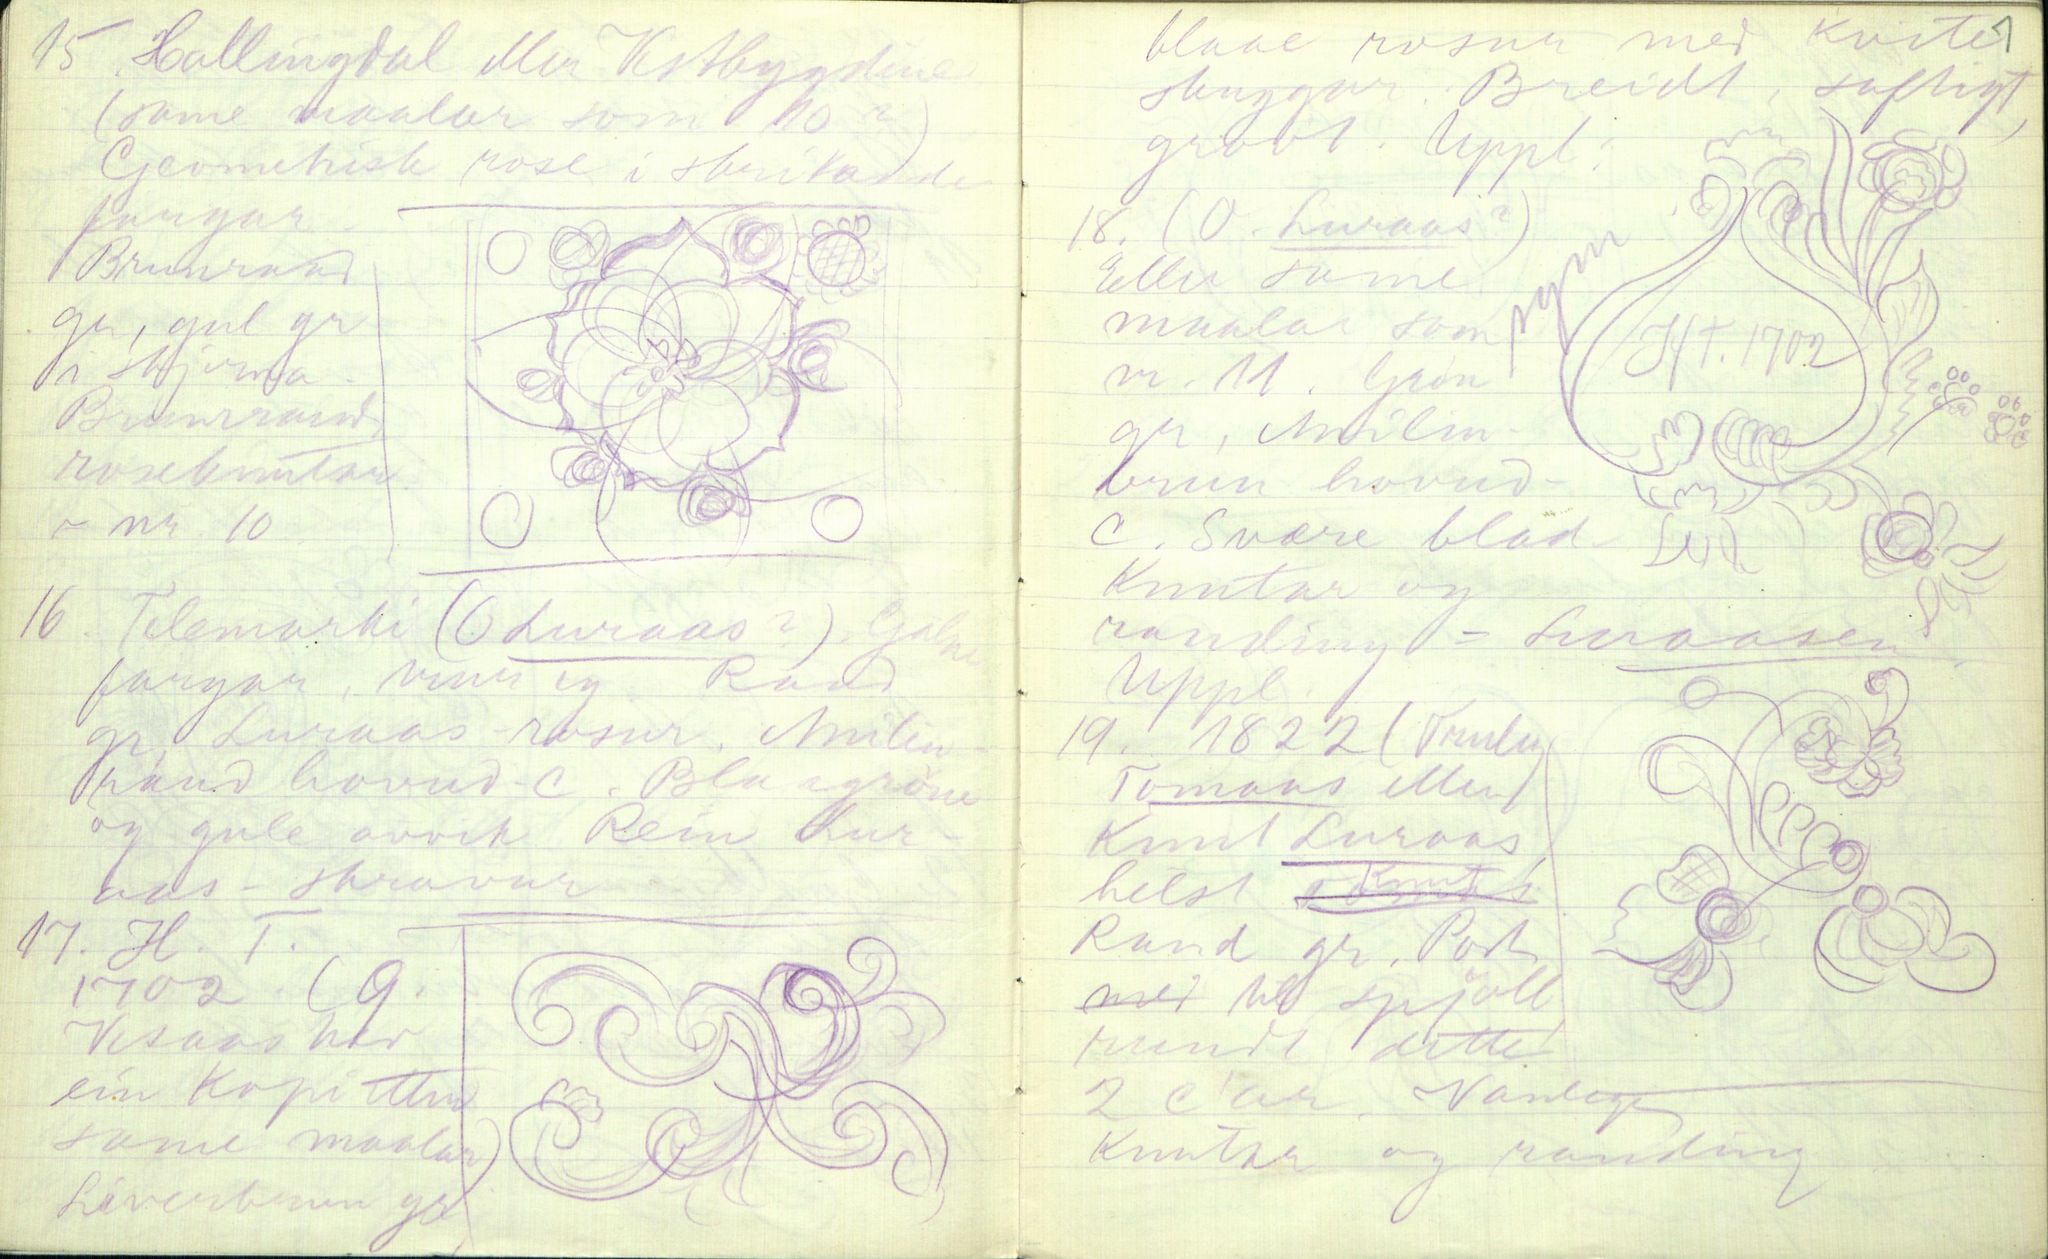 15. Hallingdal eller Vestbygdine
(same maalar som 10?)
Geometrisk rose i skrikande
fargar.
Brunraud
gr, gul gr
i skjerma.
Brunraud
roseknutar
- nr. 10
16. Telemarki (O Luraas?)
fargar, Raud
gr, Luraas-rosur. Anilin-
raud hovud-C. Blaa, gröne
og gule Rein Lur-
aas-skravur
17. H. T.
1702. (
Vesaas har
ein Kopi etter
same maalar)
Leverbrun gr
blaae rosur med kvite
skuggar. Breidt, saftigt,
grovt. Uppl:
18. (O. Luraas?)
Eller same
maalar som
nr. 11. Grön
gr, Anilin-
brun hovud-
C. Svære blad
Knutar og
randing - Luraasen
Uppl.
H T. 1702
19. 1822 (
Tomaas eller
Knut Luraas
helst Knut
Raud gr.
med spjöll
rundt dette
2 C'ar. Vanlege
Knutar og randing